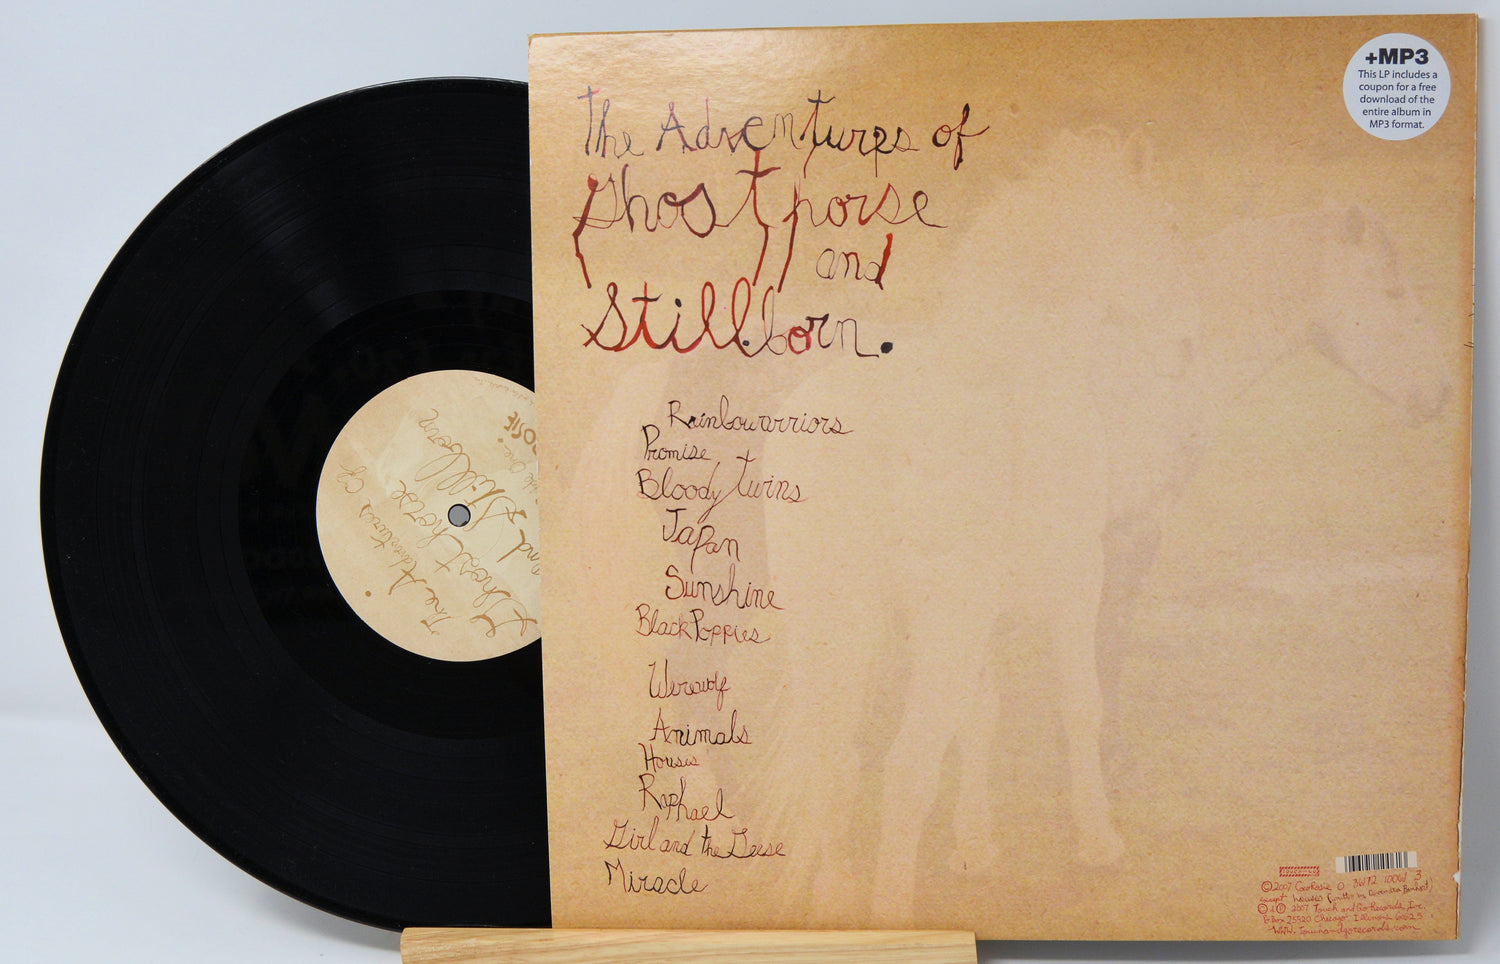 The Adventures of
Ghosthorse
and
Stillborn.
Rainbowarriors
Promise
Bloody Twins
Japan
Sunshine
Black Poppies
Werewolf
Animals
Houses
Raphael
Girl and the Geese
Miracle
+MP3
This LP includes a
coupon for a free
download of the
entire album in
MP3 format.
The Adventures of
Ghosthorse
and Stillborn
OSIE
©2007 CocoRosie 0 36172 10061 3
except houses (written by Devendra Banhart)
© & ℗ 2007 Touch and Go Records, Inc.
P.O. Box 25520 Chicago, Illinois 60625
www.touchandgorecords.com